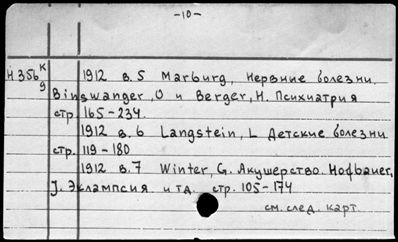 -10-
Н 356 к/9 1912 в. 5 Marburg, Нервние болезни.
Binswanger, O и Berger, H. Психиатрия
стр. 165-234.
1912 в. 6 Langstein, L Детские болезни
стр. 119-180
1912 в. 7 Winter, G. Акушерство. Hofbauer,
J. Эклампсия и тд. стр. 105-174
см. след. карт.